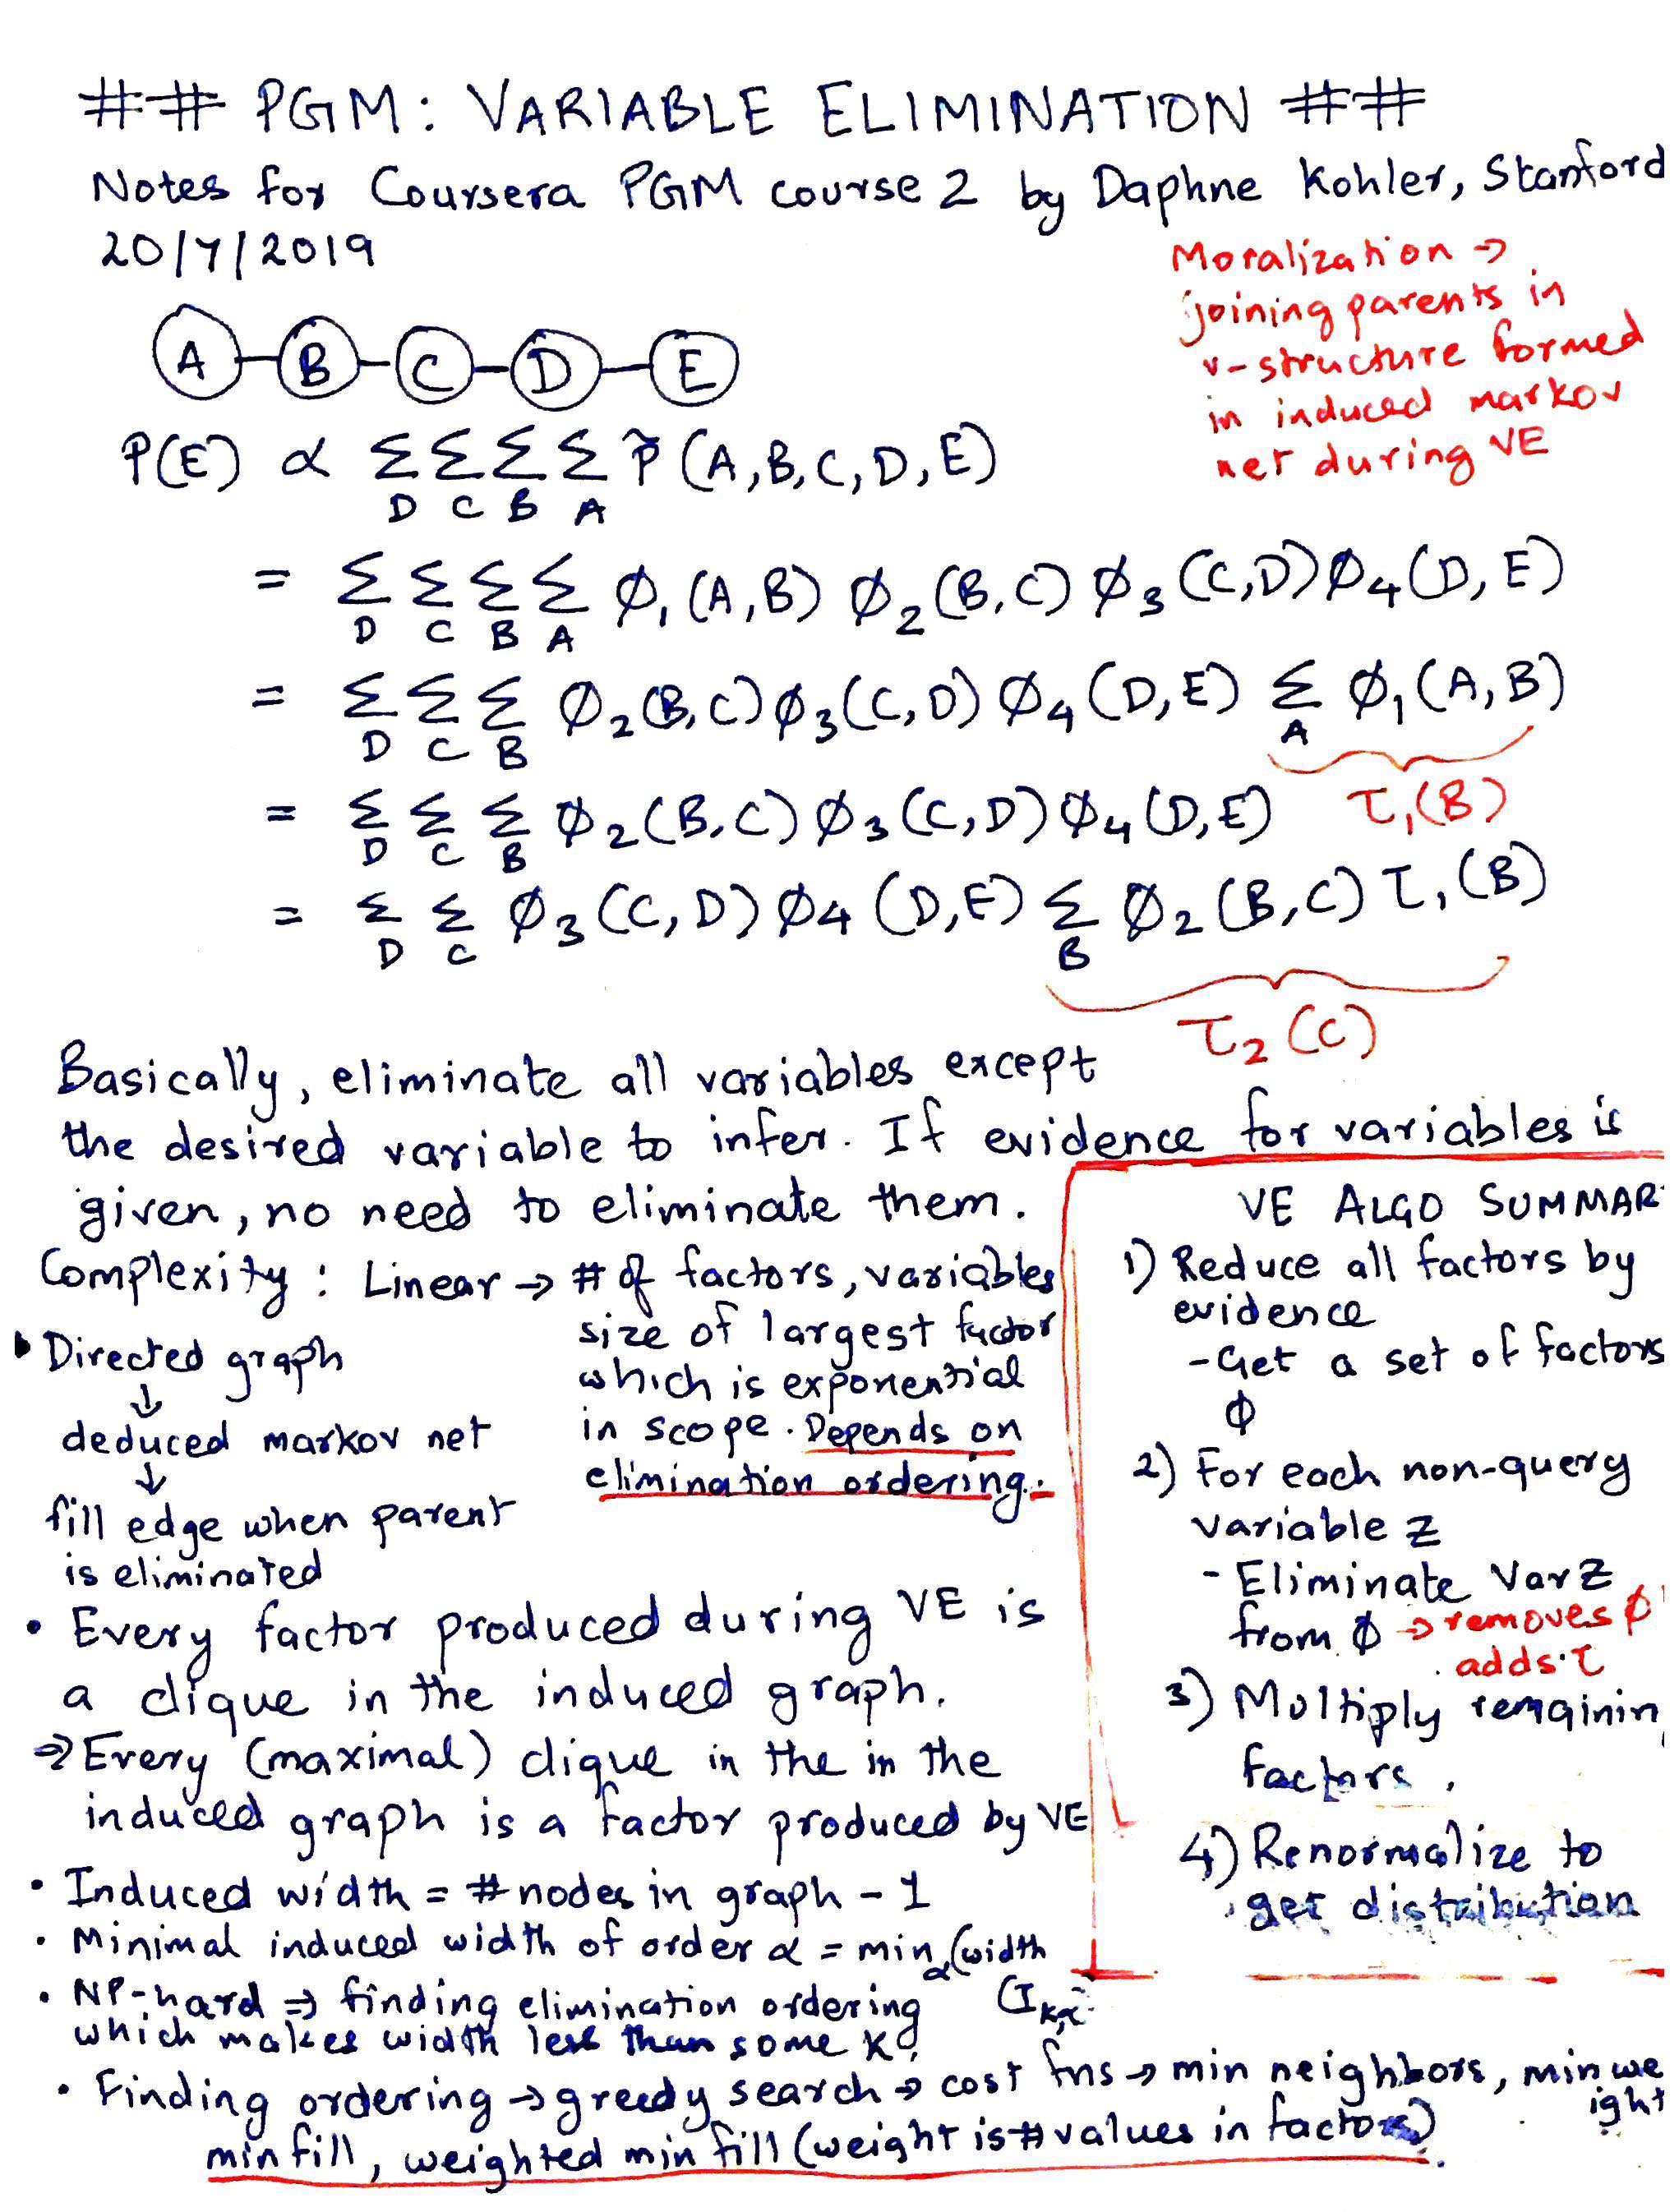 ## PGM: VARIABLE ELIMINATION ##
Notes for Coursera PGM course 2 by Daphne Kohler, Stanford
20/7/2019
Moralization →
joining parents in
v-structure formed
in induced markov
net during VE
A B C D E
P(E) ∝ Σ_D Σ_C Σ_B Σ_A P̃(A,B,C,D,E)
= Σ_D Σ_C Σ_B Σ_A ø₁(A,B) ø₂(B,C) ø₃(C,D) ø₄(D,E)
= Σ_D Σ_C Σ_B ø₂(B,C) ø₃(C,D) ø₄(D,E) Σ_A ø₁(A,B)
= Σ_D Σ_C Σ_B ø₂(B,C) ø₃(C,D) ø₄(D,E) τ₁(B)
= Σ_D Σ_C ø₃(C,D) ø4(D,E) Σ_B ø₂(B,C) τ₁(B)
τ₂(C)
Basically, eliminate all variables except
the desired variable to infer. If evidence for variables is
given, no need to eliminate them.
Complexity: Linear → # of factors, variables
size of largest factor
which is exponential
in scope. Depends on
elimination ordering.
Directed graph
↓
deduced markov net
↓
fill edge when parent
is eliminated
• Every factor produced during VE is
a clique in the induced graph.
⇒ Every (maximal) clique in the in the
induced graph is a factor produced by VE
• Induced width = # nodes in graph - 1
• Minimal induced width of order α = min_α(width
(I_K,α
• NP-hard ⇒ finding elimination ordering
which makes width less than some K
• Finding ordering → greedy search → cost fns → min neighbors, min we
ight
min fill, weighted min fill (weight is # values in factors).
VE ALGO SUMMAR
1) Reduce all factors by
evidence
- Get a set of factors
Φ
2) For each non-query
variable Z
- Eliminate Var Z
from Φ → removes ø
adds τ
3) Multiply remainin
factors.
4) Renormalize to
get distribution